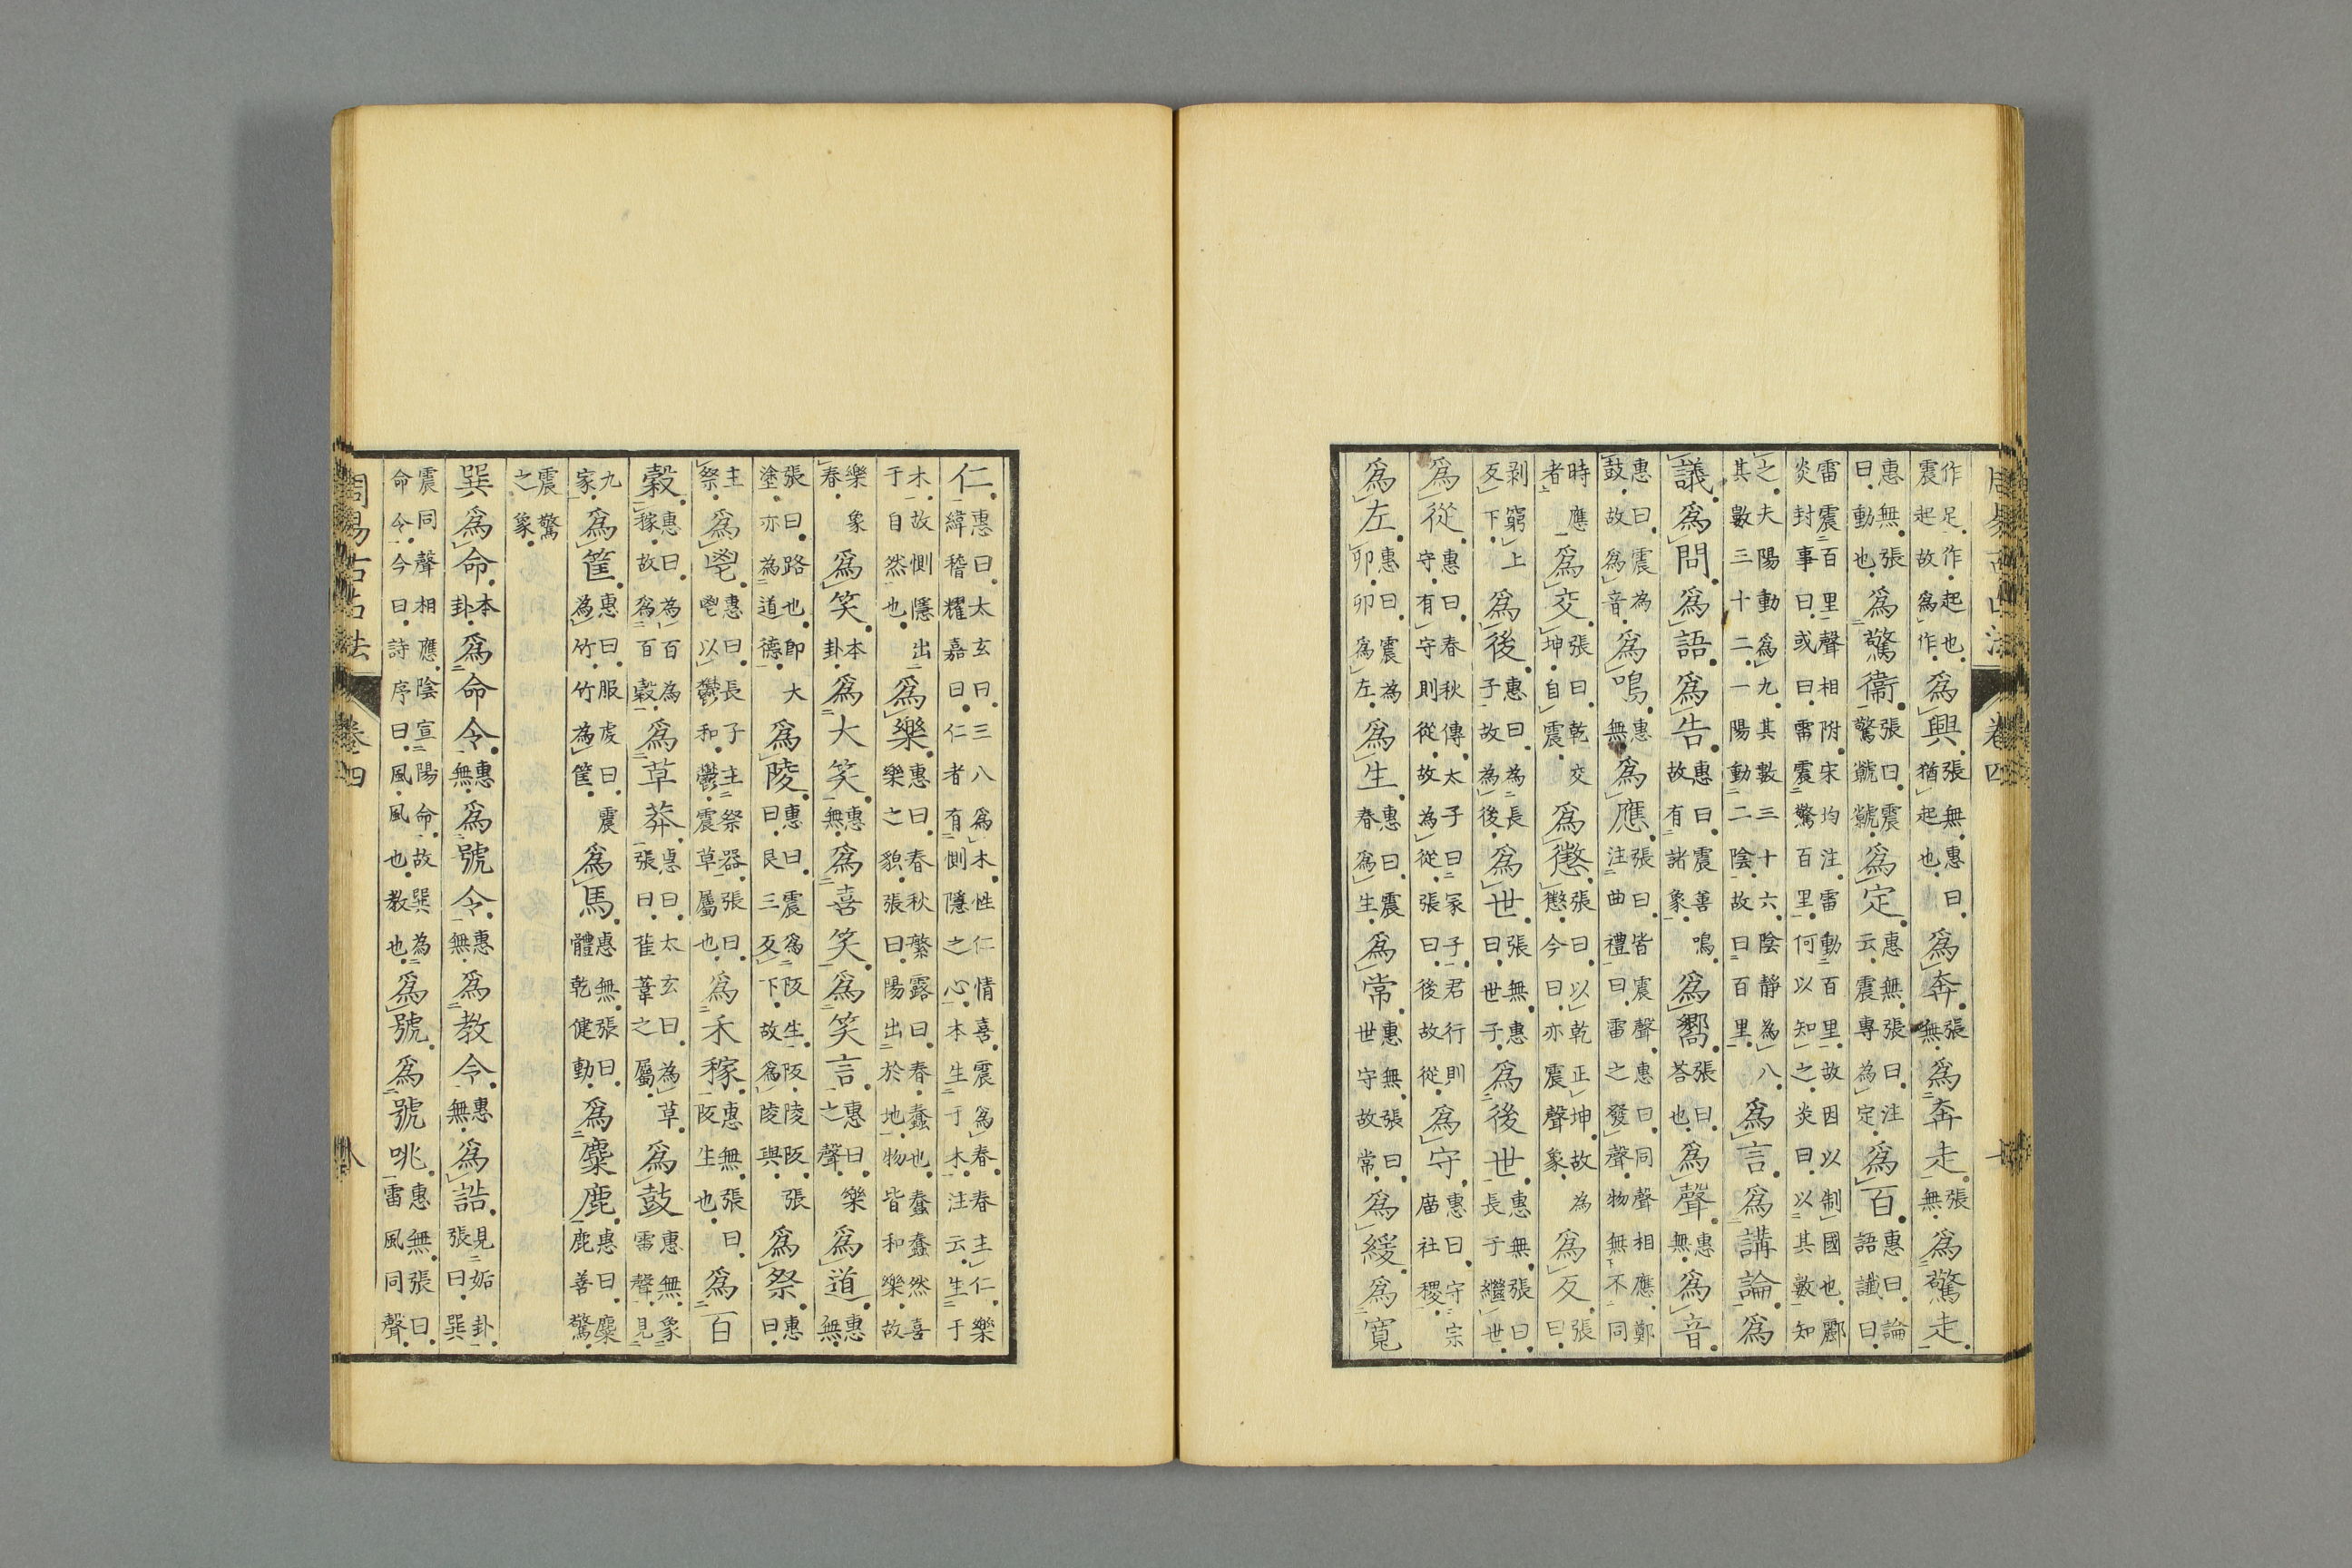 周易古占法 卷四 七
作足作起也震起故爲作爲興張無惠曰猶起也爲奔張無爲奔走張無爲驚走
惠無張曰動也爲驚衞張曰震驚虩虩爲定惠無張曰注云震專為定爲百惠曰論語讖曰
雷震百里聲相附宋均注雷動百里故因以制國也酈炎封事曰或曰雷震驚百里何以知之炎曰以其數知
之夫陽動爲九其數三十六陰靜為八其數三十二一陽動二陰故曰百里爲言爲講論爲
議爲問爲語爲告惠曰震善鳴故有諸象爲嚮張曰荅也爲聲惠無爲音
惠曰震為鼓故爲音爲鳴惠無爲應張曰皆震聲惠曰同聲相應鄭注曲禮曰雷之發聲物無不同
時應者爲交張曰乾交坤自震爲懲張曰以乾正坤故為懲今曰亦震聲象爲反張曰
剥窮上反下爲後惠曰為長子故為後爲世張無惠曰世子爲後世惠無張曰長子繼世
爲從惠曰春秋傳太子曰冢子君行則守有守則從故為從張曰後故從爲守惠曰守宗廟社稷
爲左惠曰震為卯卯爲左爲生惠曰震春爲生爲常惠無張曰世守故常爲緩爲寬
仁惠曰太玄曰三八爲木性仁情喜震爲春春主仁樂緯稽耀嘉曰仁者有惻隱之心本生于木注云生于
木故惻隱出于自然也爲樂惠曰春秋繁露曰春蠢也蠢蠢然喜樂之貌張曰陽出於地物皆和樂故
樂象春爲笑本卦爲大笑惠無爲喜笑爲笑言惠曰樂之聲爲道惠無
張曰路也即大塗亦為道德爲陵惠曰震爲阪生阪陵阪張曰艮三反下故爲陵與爲祭惠曰
主祭爲鬯惠曰長子主祭器張曰鬯以鬱和鬱震草屬也爲禾稼惠無張曰阪生也爲百
穀惠曰為百為稼故爲百穀爲草莽惠曰太玄曰為草張曰萑葦之屬爲鼓惠無象雷聲見
九家爲筐惠曰服虔曰震為竹竹為筐爲馬惠無張曰體乾健動爲麋鹿惠曰麋鹿善驚
震驚之象
巽爲命本卦爲命令惠無爲號令惠無爲教令惠無爲誥見姤卦張曰巽
震同聲相應陰宣陽命故巽為命令今曰詩序曰風風也教也爲號爲號咷惠無張曰雷風同聲
周易古占法 卷四 八